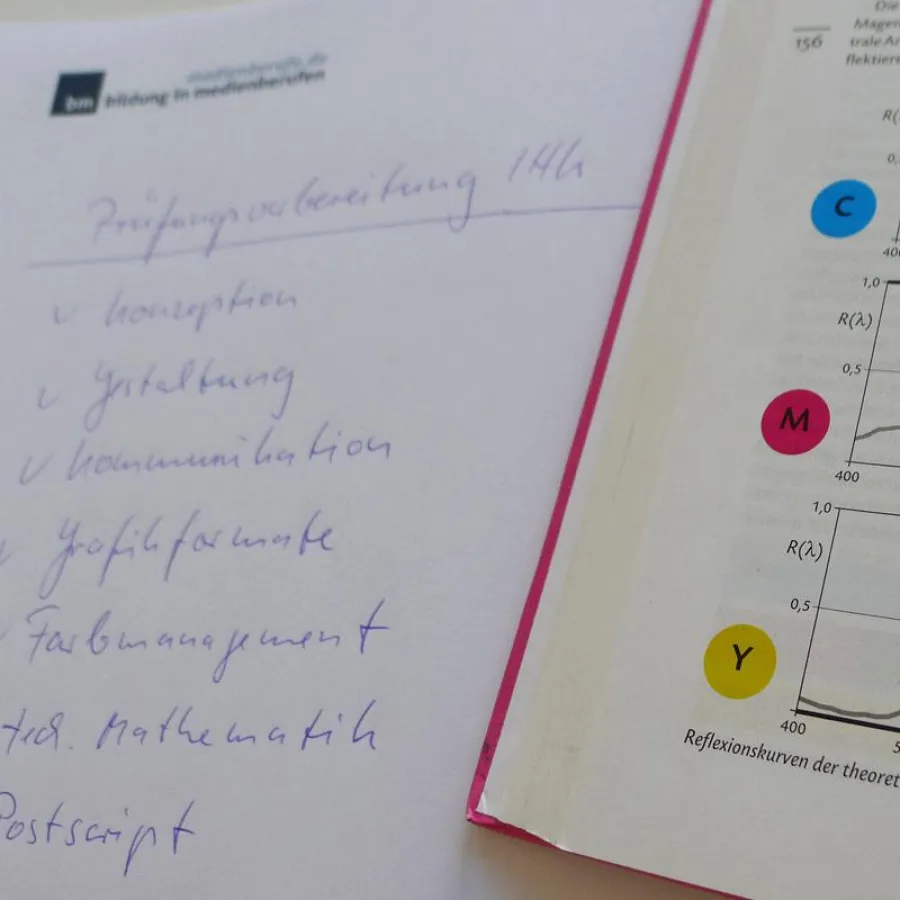 medienberufe.de
bm bildung in medienberufen
Prüfungsvorbereitung 14h
✓ Konzeption
✓ Gestaltung
✓ Kommunikation
✓ Grafikformate
✓ Farbmanagement
tech. Mathematik
Postscript
156
Die
Magen
trale Ar
flektiere
R(
0,
C
400
1,0
R(λ)
0,5
M
400
1,0
R(λ)
0,5
Y
400
5
Reflexionskurven der theoret